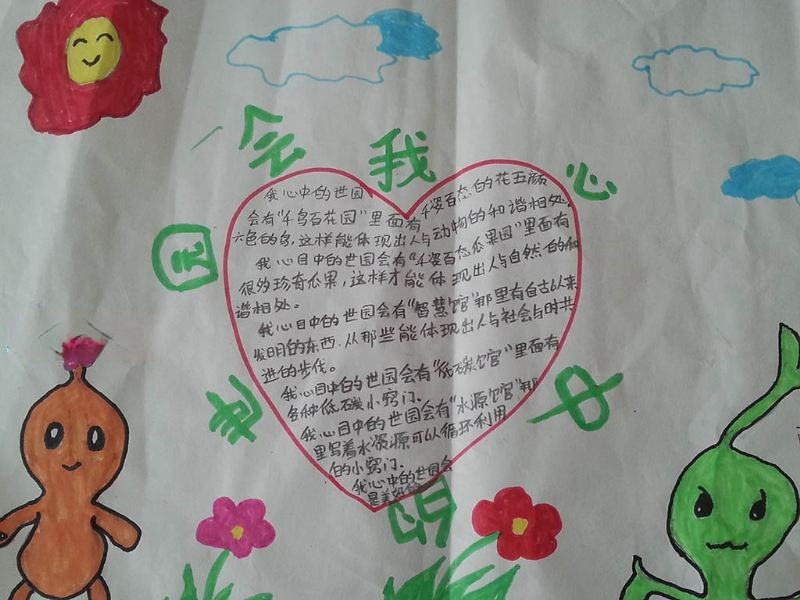 我
心
中
的
世
园
会
我心中的世园
会有“千鸟百花园”里面有千姿百态的花五颜
六色的鸟,这样能体现出人与动物的和谐相处。
我心目中的世园会有“千姿百态瓜果园”里面有
很多珍奇瓜果,这样才能体现出人与自然的和
谐相处。
我心目中的世园会有“智慧馆”那里有自古以来
发明的东西.从那些能体现出人与社会与时共
进的步伐。
我心目中的世园会有“低碳馆”里面有
各种低碳小窍门.
我心目中的世园会有“水源馆”那
里写着水资源可以循环利用
的小窍门.
我心中的世园会
是美好的